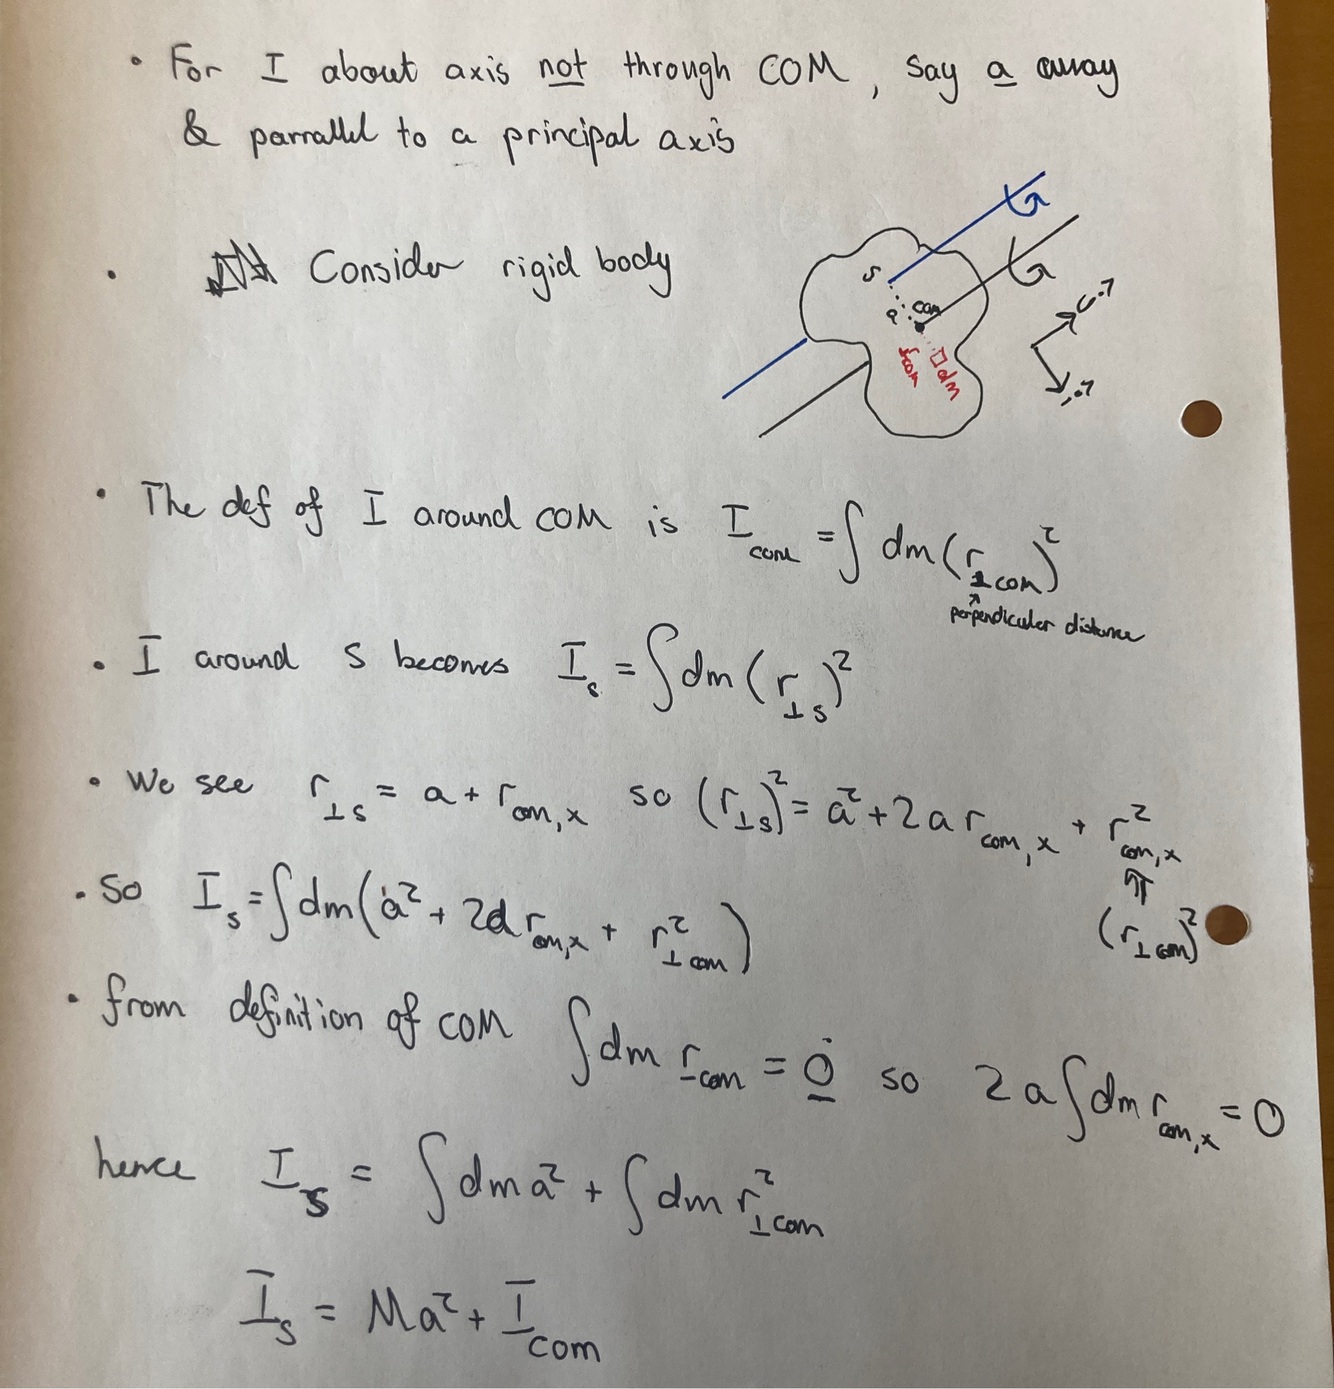 • For I about axis not through COM, say a away
& parrallel to a principal axis
• Consider rigid body
S
a
com
r com
dm
• The def of I around COM is I_com = ∫ dm (r_⊥com)²
perpendicular distance
• I around S becomes I_s = ∫ dm (r_⊥s)²
• We see r_⊥s = a + r_com,x so (r_⊥s)² = a² + 2a r_com,x + r²_com,x
⇑
(r_⊥com)²
• So I_s = ∫ dm (a² + 2a r_com,x + r²_⊥com)
• from definition of COM ∫ dm r_com = 0 so 2a ∫ dm r_com,x = 0
hence I_s = ∫ dm a² + ∫ dm r²_⊥com
I_s = Ma² + I_com